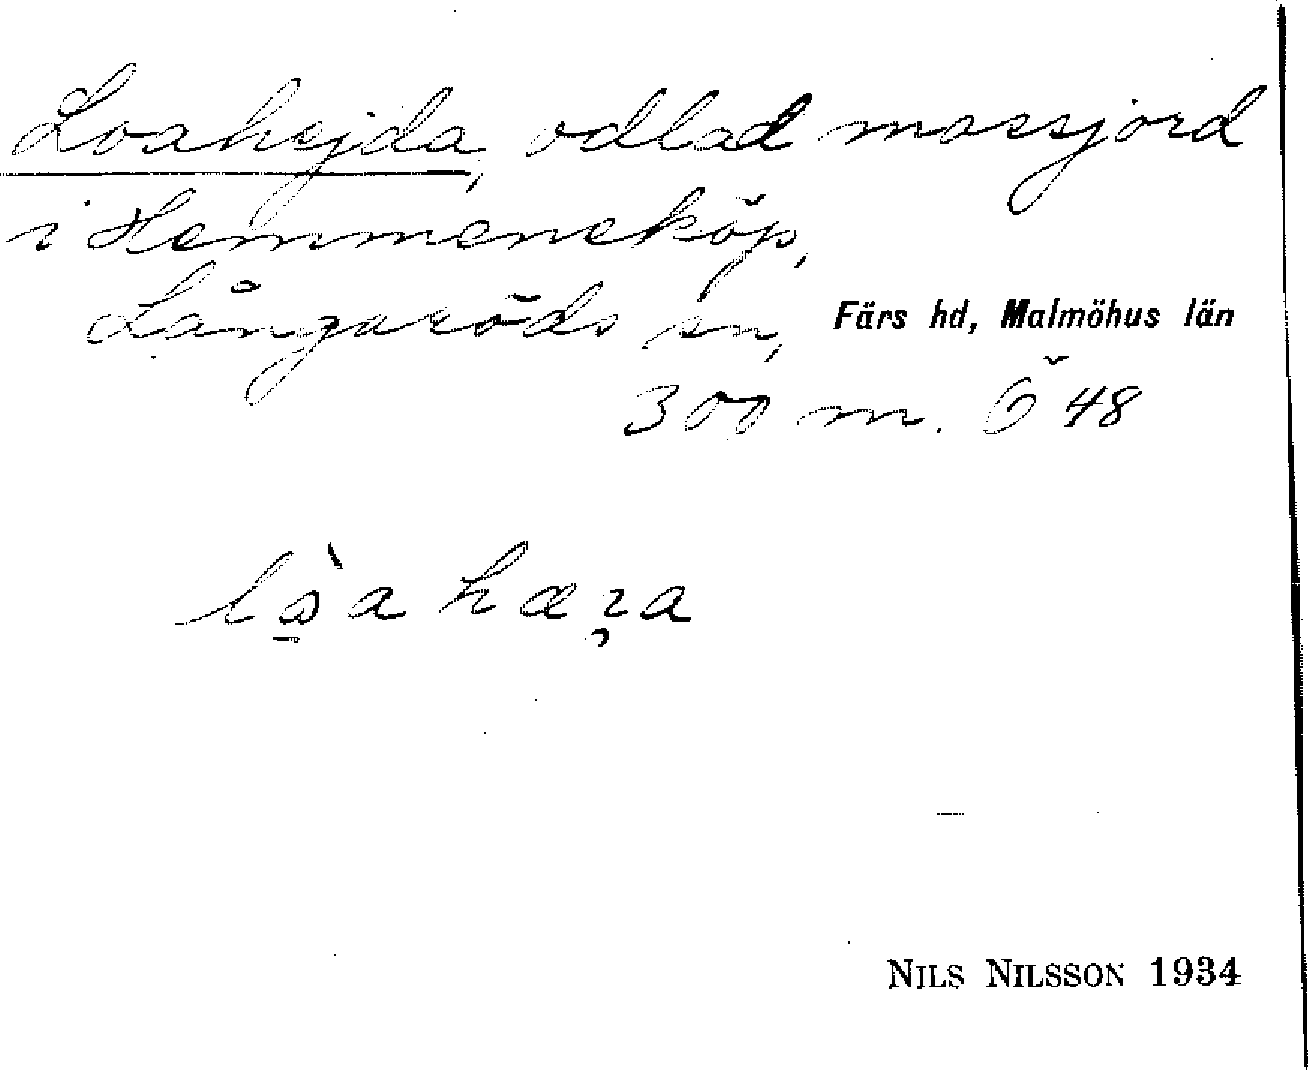 Loahejda, odlad mossjord
i Hemmeneköp,
Långaröds sn, Färs hd, Malmöhus län
300 m. Ö 48
NILS NILSSON 1934